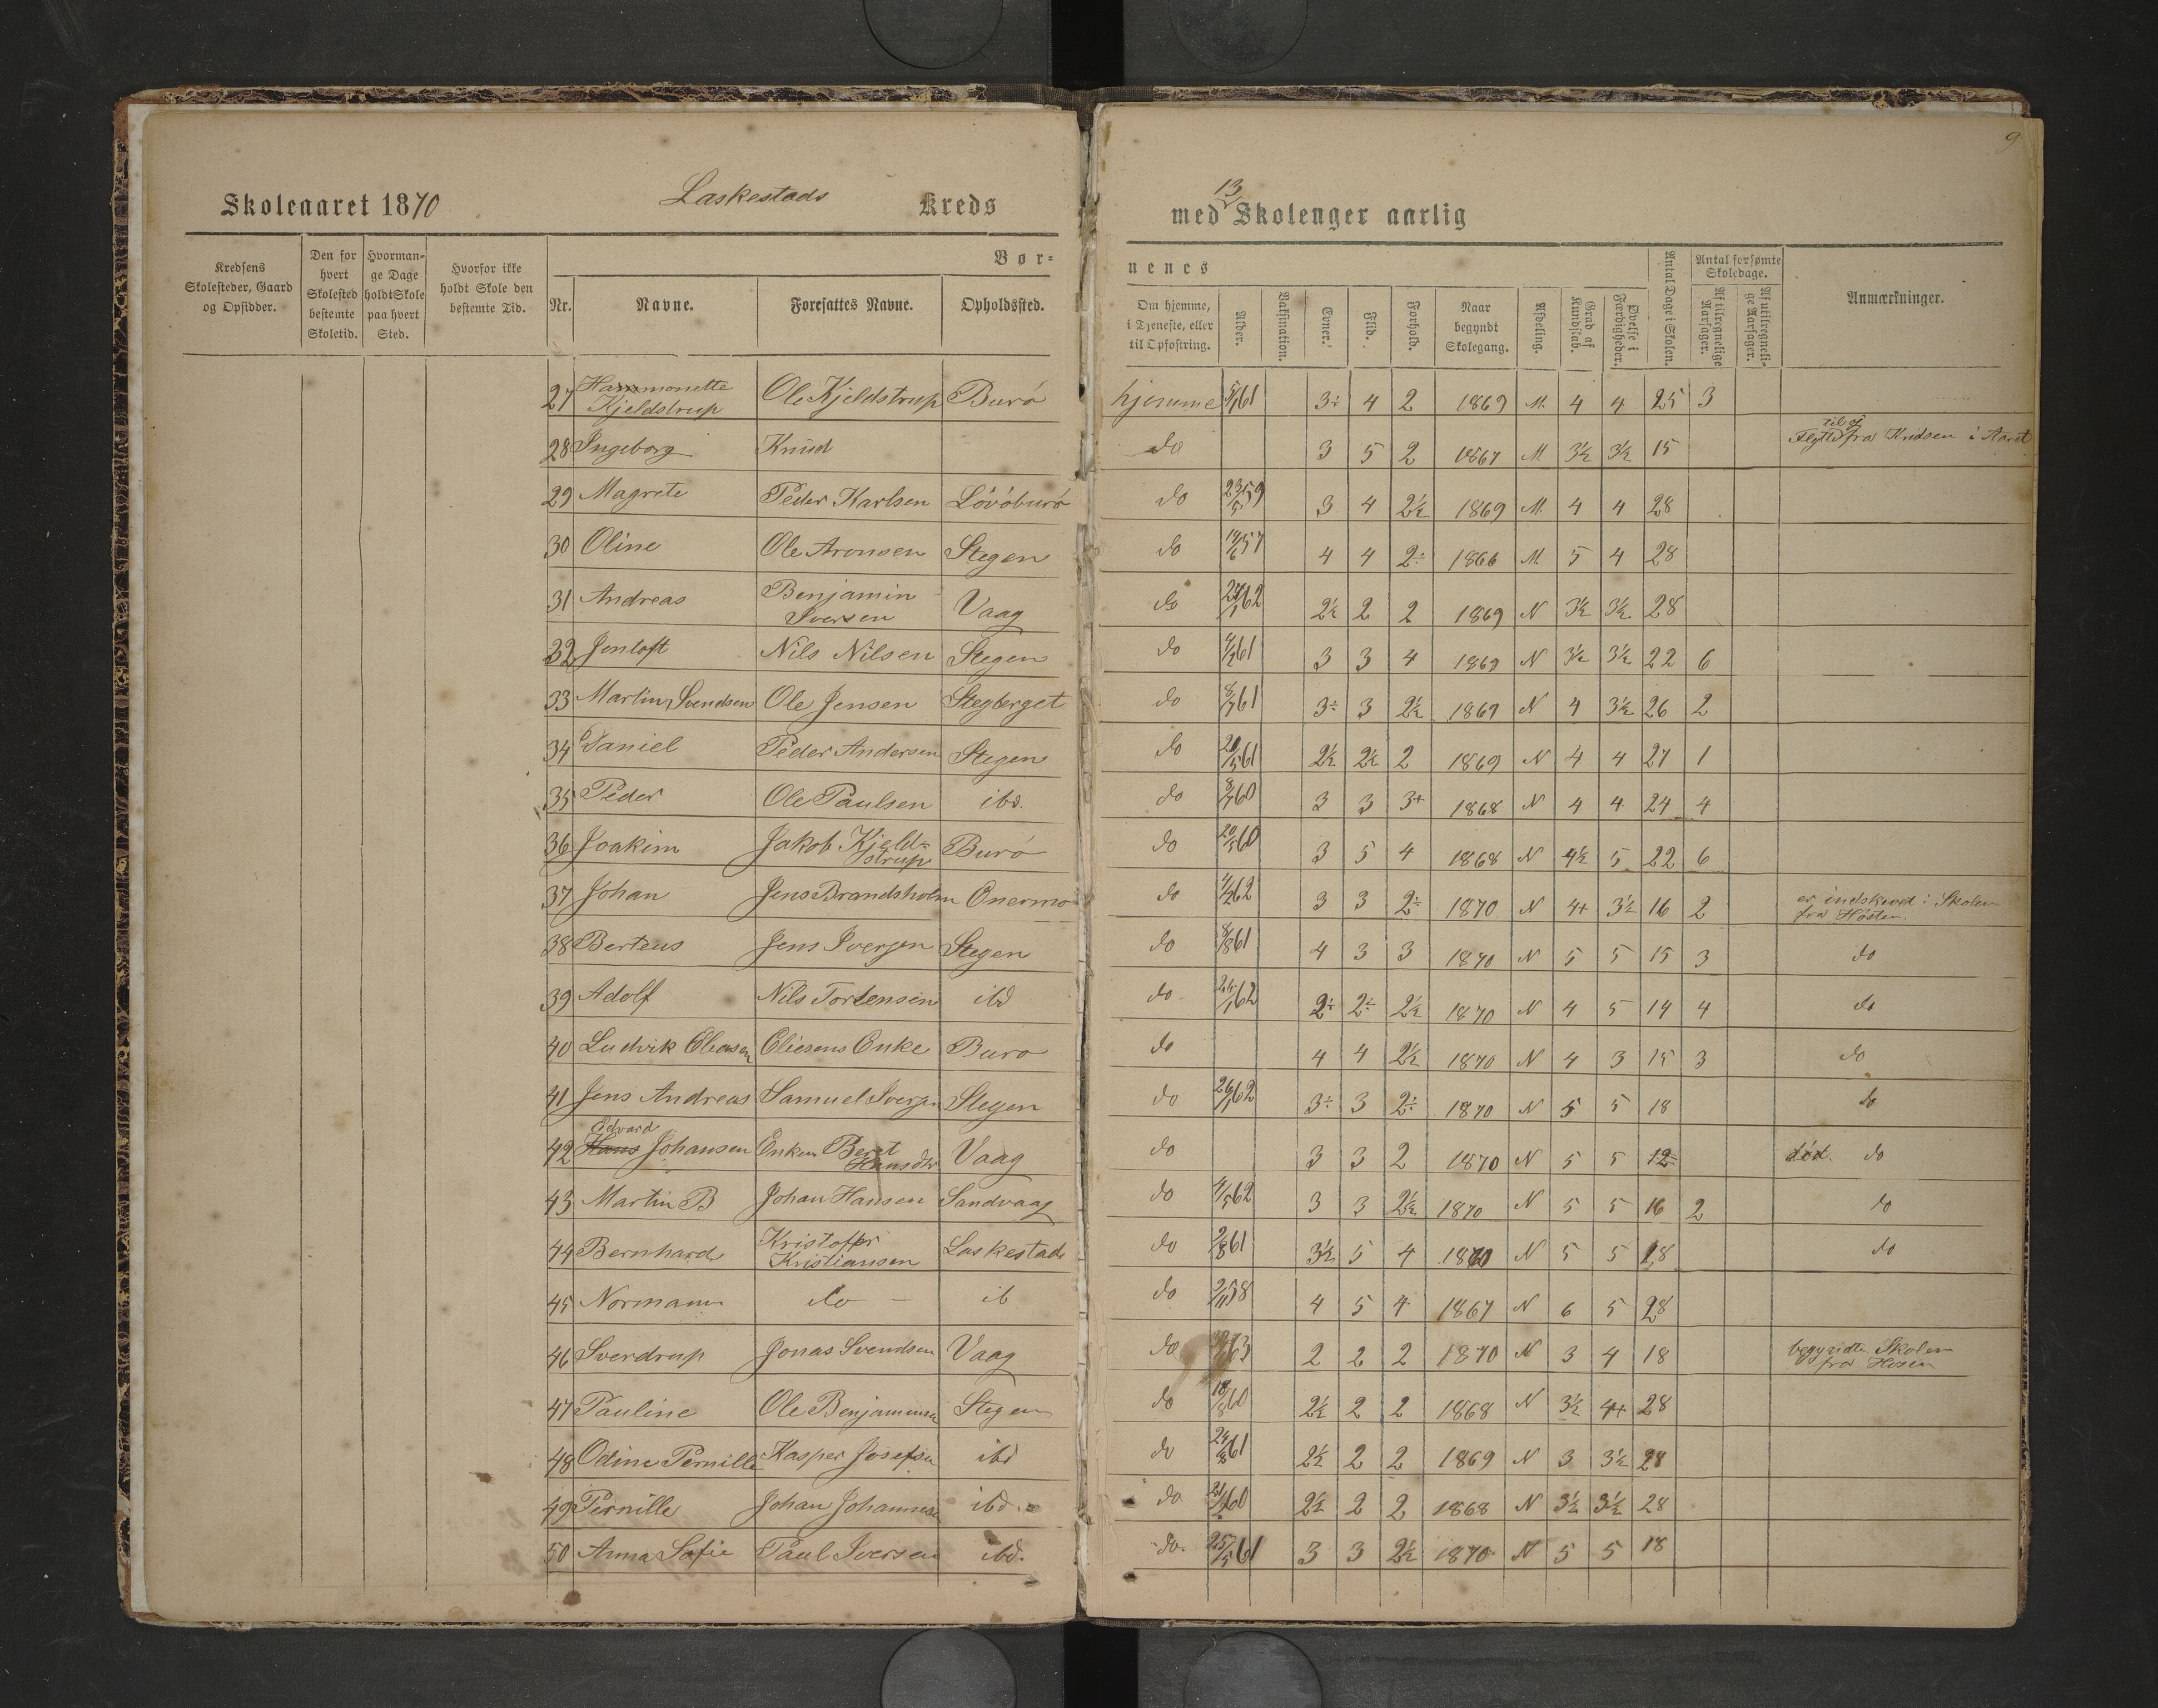 9
Skoleaaret 1870 Laskestads Kreds
13
med Skolenger aarlig
Kredsens Skolesteder, Gaard og Opsidder.
Den for hvert Skolested bestemte Skoletid.
Hvormange Dage holdt Skole paa hvert Sted.
Hvorfor ikke holdt Skole den bestemte Tid.
Bør-
nenes
Nr. Navne. Foresattes Navne. Opholdssted.
Om hjemme, i Tjeneste, eller til Opfostring. Alder. Vaksination. Evner. Flid. Forhold. Naar begyndt Skolegang. Afdeling. Grad af Kundskab. Øvelse i Færdigheder. Antal Dage i Skolen. Antal forsømte Skoledage. Af tilregnelige Aarsager. Af utilregnelige Aarsager. Anmærkninger.
27 Hammonette Kjeldstrup Ole Kjeldstrup Burö hjemme 61 3÷ 4 2 1869 M. 4 4 25 3
28 Ingeborg Knud do 3 5 2 1867 M. 3½ 3½ 15 Flyttd til og fra Kridsen i Aaret
29 Magrete Peder Karlsen Lövöburö do 23/5 59 3 4 2½ 1869 M. 4 4 28
30 Oline Ole Aronsen Stegen do 57 4 4 2÷ 1866 M. 5 4 28
31 Andreas Benjamin Iversen Vaag do 62 2½ 2 2 1869 N 3½ 3½ 28
32 Jentoft Nils Nilsen Stegen do 61 3 3 4 1869 N 3½ 3½ 22 6
33 Martin Svendsen Ole Jensen Stegberget do 61 3÷ 3 2½ 1869 N 4 3½ 26 2
34 Daniel Peder Andersen Stegen do 20/5 61 2½ 2½ 2 1869 N 4 4 27 1
35 Peder Ole Paulsen ibd. do 60 3 3 3+ 1868 N 4 4 24 4
36 Joakim Jakob Kjeldstrup Burö do 20/5 60 3 5 4 1868 N 4½ 5 22 6
37 Johan Jens Brandsholm Önermo do 62 3 3 2÷ 1870 N 4+ 3½ 16 2 er indskrevet i Skolen fra Hösten.
38 Berteus Jens Iversen Stegen do 8/8 61 4 3 3 1870 N 5 5 15 3 do
39 Adolf Nils Torbensen ibd do 62 2÷ 2÷ 2½ 1870 N 4 5 14 4 do
40 Ludvik Eliesen Eliesens Enke Buro do 4 4 2½ 1870 N 4 3 15 3 do
41 Jens Andreas Samuel Iversen Stegen do 26/1 62 3÷ 3 2÷ 1870 N 5 5 18 do
Edvard
42 Hans Johansen Enken Beret Hansdtr Vaag do 3 3 2 1870 N 5 5 12 död. do
43 Martin B Johan Hansen Sandvaag do 4/5 62 3 3 2½ 1870 N 5 5 16 2 do
44 Bernhard Kristoffer Kristiansen Laskestad do 2/8 61 3½ 5 4 1870 N 5 5 18 do
45 Normann do — ib do 2/11 58 4 5 4 1867 N 6 5 28
46 Sverdrup Jonas Svendsen Vaag do 63 2 2 2 1870 N 3 4 18 begyndte Skolen fra Hösen
47 Pauline Ole Benjaminsen Stegen do 18/8 60 2½ 2 2 1868 N 3½ 4+ 28
48 Odine Pernille Kasper Josefsen ibd do 24/8 61 2½ 2 2 1869 N 3 3½ 28
49 Pernille Johan Johannesen ibd. do 60 2½ 2 2 1868 N 3½ 3½ 28
50 Anna Sofie Paul Iversen ibd. do. 25/5 61 3 3 2½ 1870 N 5 5 18